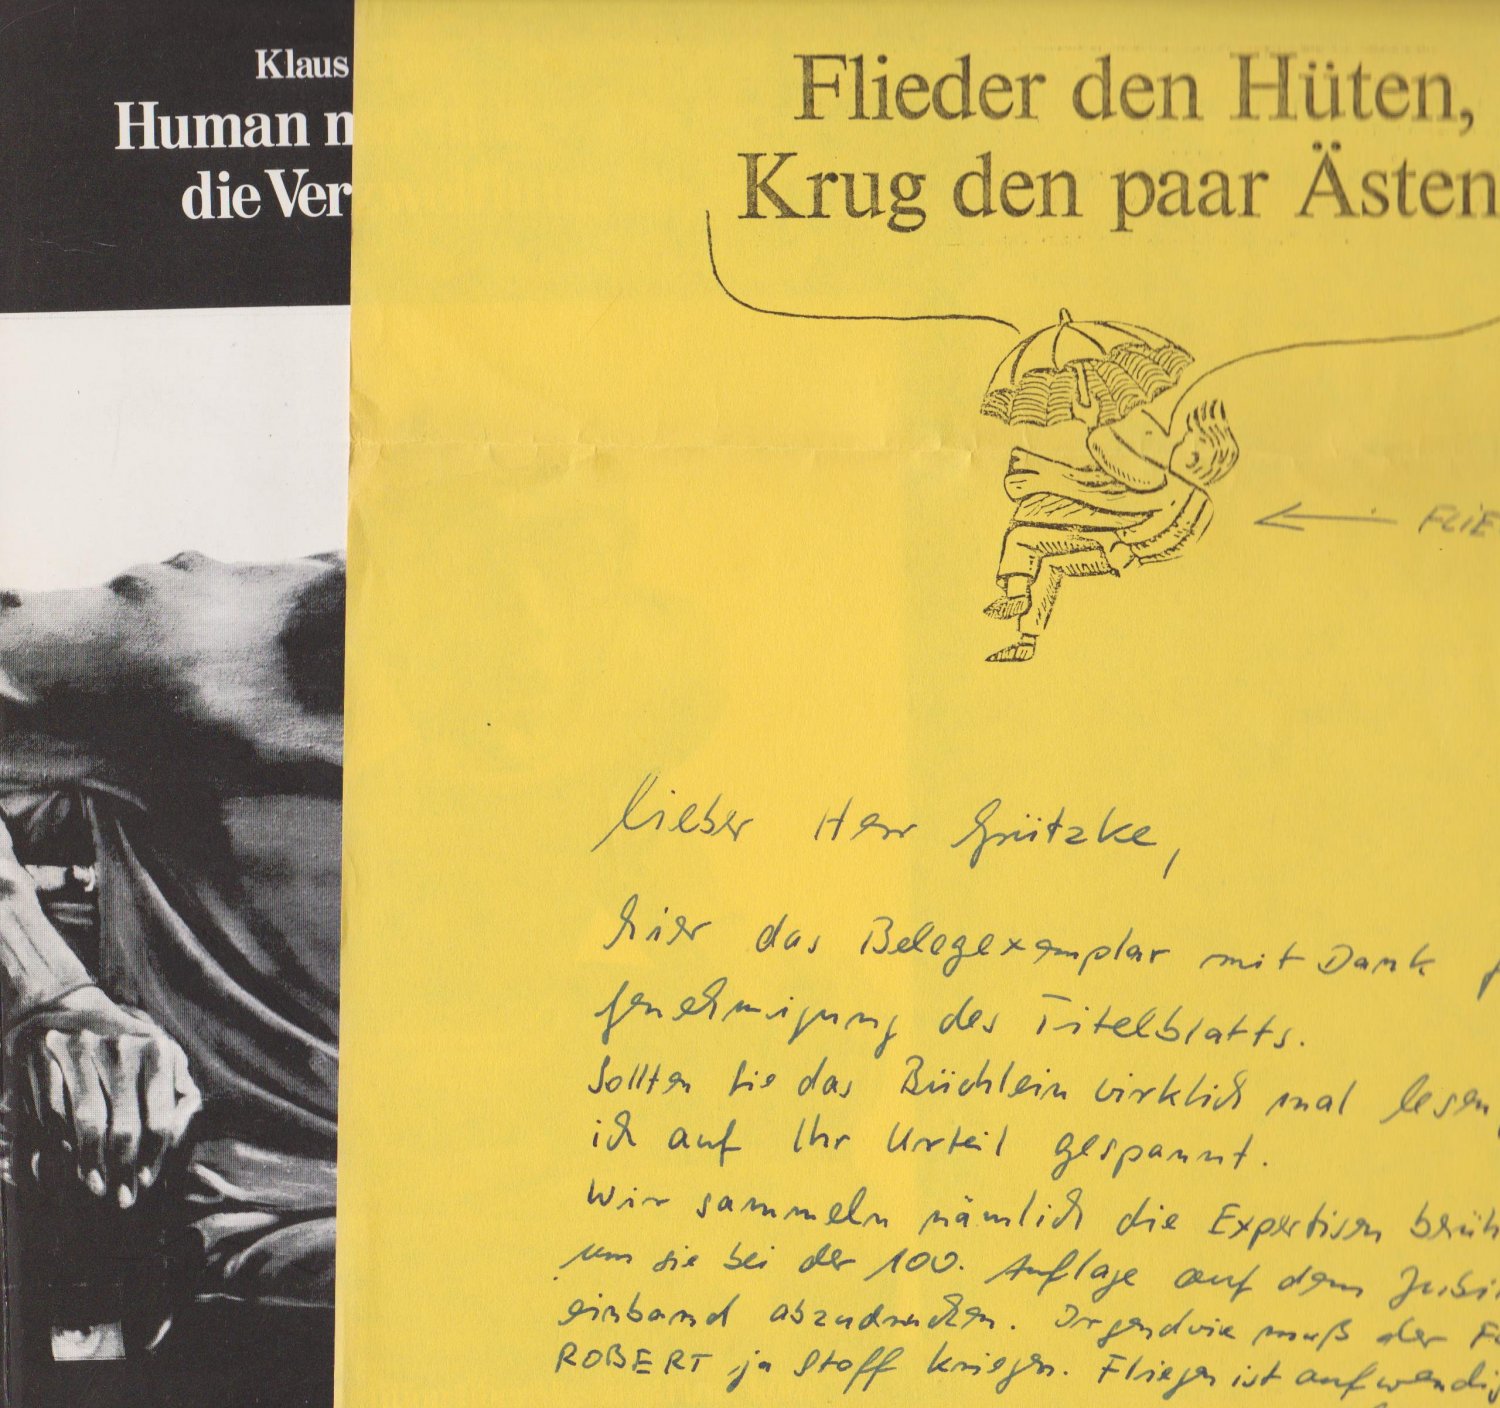 Klaus
Human n
die Ver
Flieder den Hüten,
Krug den paar Ästen
FLIE
Lieber Herr Grützke,
hier das Belegexemplar mit Dank f
Genehmigung des Titelblatts.
Sollten Sie das Büchlein wirklich mal lesen,
ich auf Ihr Urteil gespannt.
Wir sammeln nämlich die Expertisen berüh
um sie bei der 100. Auflage auf dem Jubi
einband abzudrucken. Irgendwie muß der F
ROBERT ja Stoff kriegen. Fliegen ist aufwendig